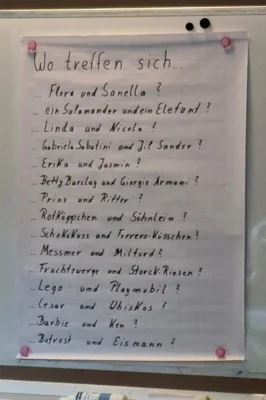 Wo treffen sich...
... Flora und Sanella ?
... ein Salamander und ein Elefant ?
... Linda und Nicola ?
... Gabriela Sabatini und Jil Sander ?
... Erika und Jasmin ?
... Betty Barclay und Giorgio Armami ?
... Prinz und Ritter ?
... Rotkäppchen und Söhnlein ?
... SchoKoKuss und Ferrero-Küsschen ?
... Messmer und Milford ?
... Fruchtzwerge und Storck-Riesen ?
... Lego und Playmobil ?
... Cesar und Whiskas ?
... Barbie und Ken ?
... Bofrost und Eismann ?